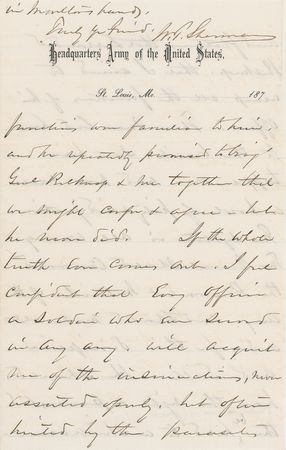 in Moulton's hands.
Truly yr friend. W. T. Sherman
Headquarters Army of the United States,
St. Louis, Mo. 187
functions were familiar to him,
and he repeatedly promised to bring
Genl Belknap & me together that
we might confer & agree - but
he never did. If the whole
truth ever comes out. I feel
confident that Every officer
or Soldier who ever served
in any army. will acquit
me of the insinuations, never
asserted openly. but often
hinted by the parasites